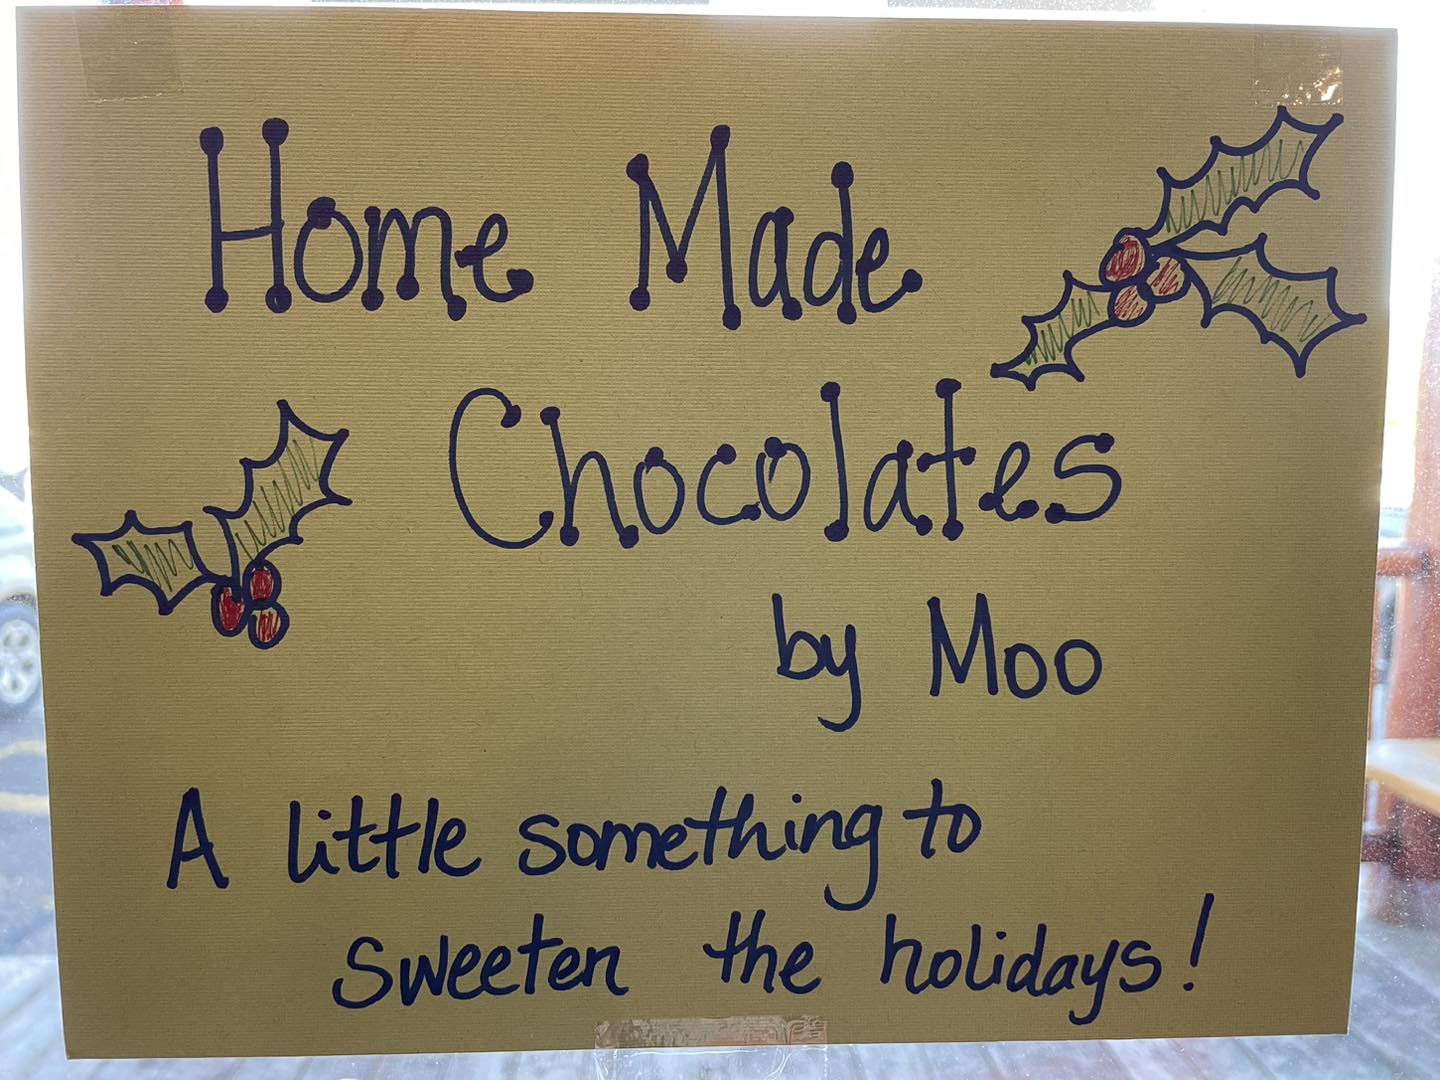 Home Made
Chocolates
by Moo
A little something to
sweeten the holidays!